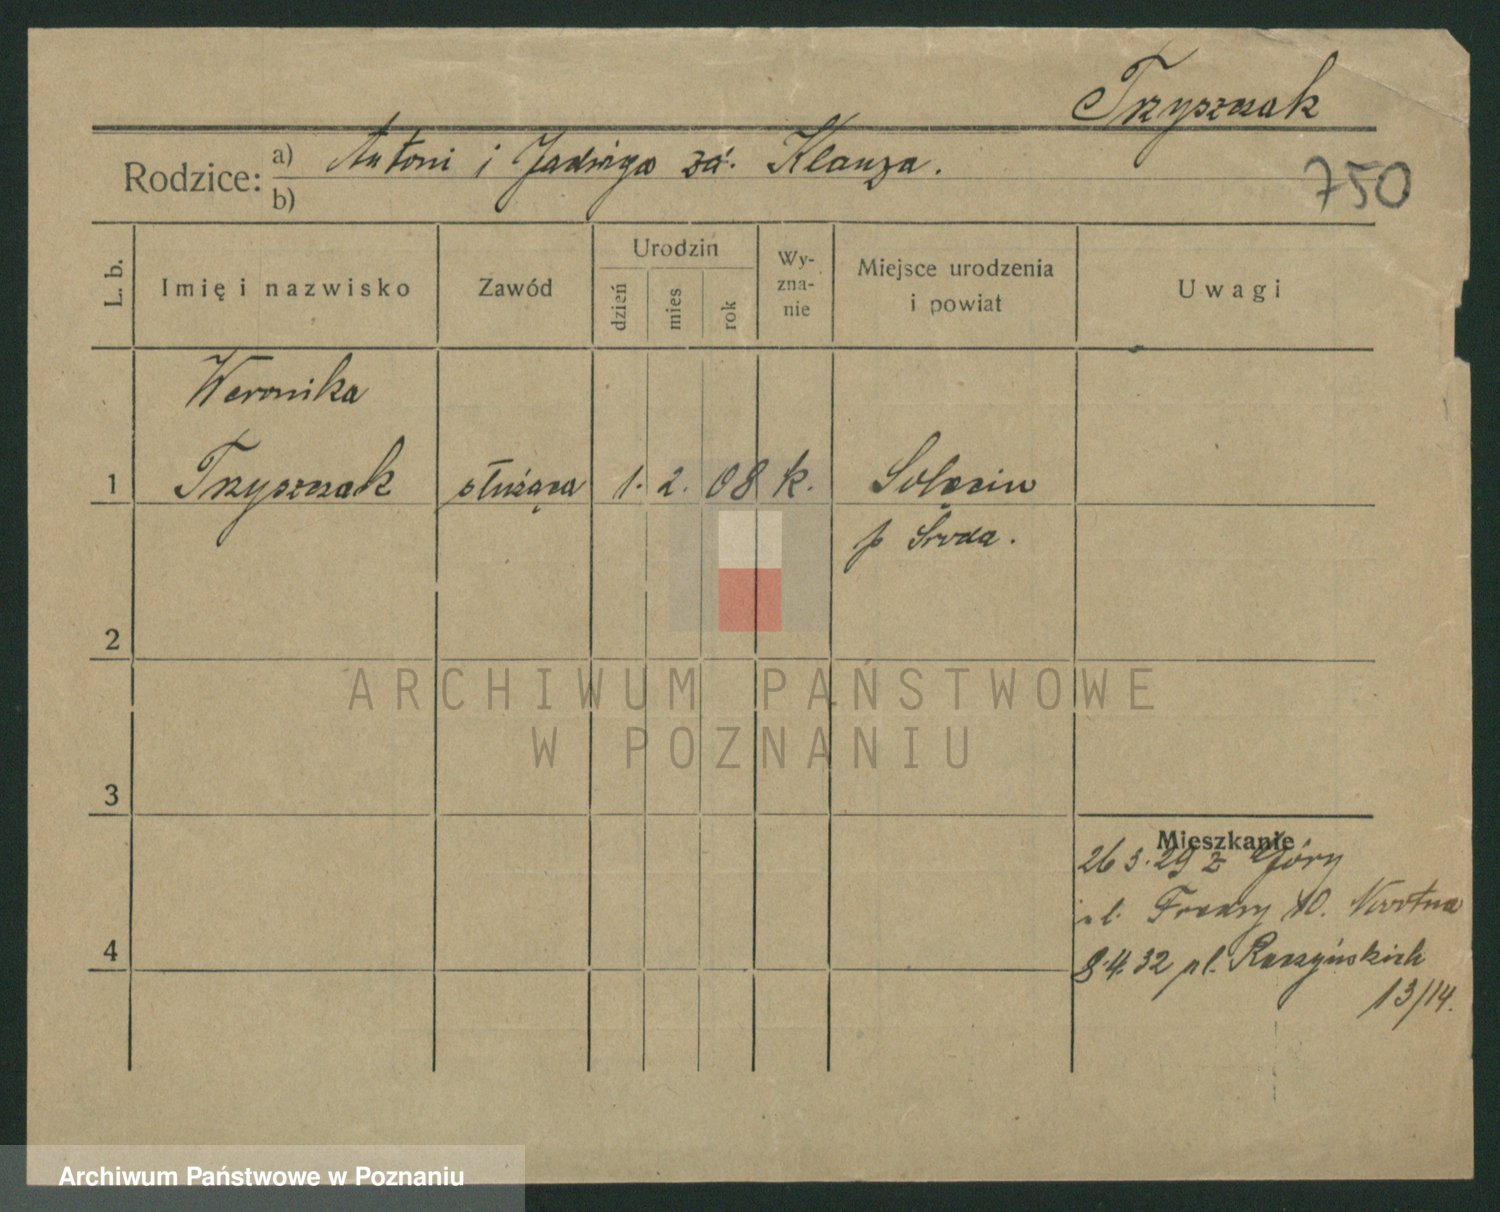 Trzyszczak
Rodzice: a) Antoni i Jadwiga za. Klauza.
b)
750
L. b.
Imię i nazwisko
Zawód
Urodzin
dzień
mies
rok
Wy-
zna-
nie
Miejsce urodzenia
i powiat
Uwagi
Weronika
1 Trzyszczak służąca 1. 2. 08 k. Solęcin
p Środa.
2
ARCHIWUM PAŃSTWOWE
W POZNANIU
3
Mieszkanie
26 3. 29 z Góry
ul. Fredry 10. Wrotna
4
8.4.32 pl. Raczyńskich
13/14.
Archiwum Państwowe w Poznaniu